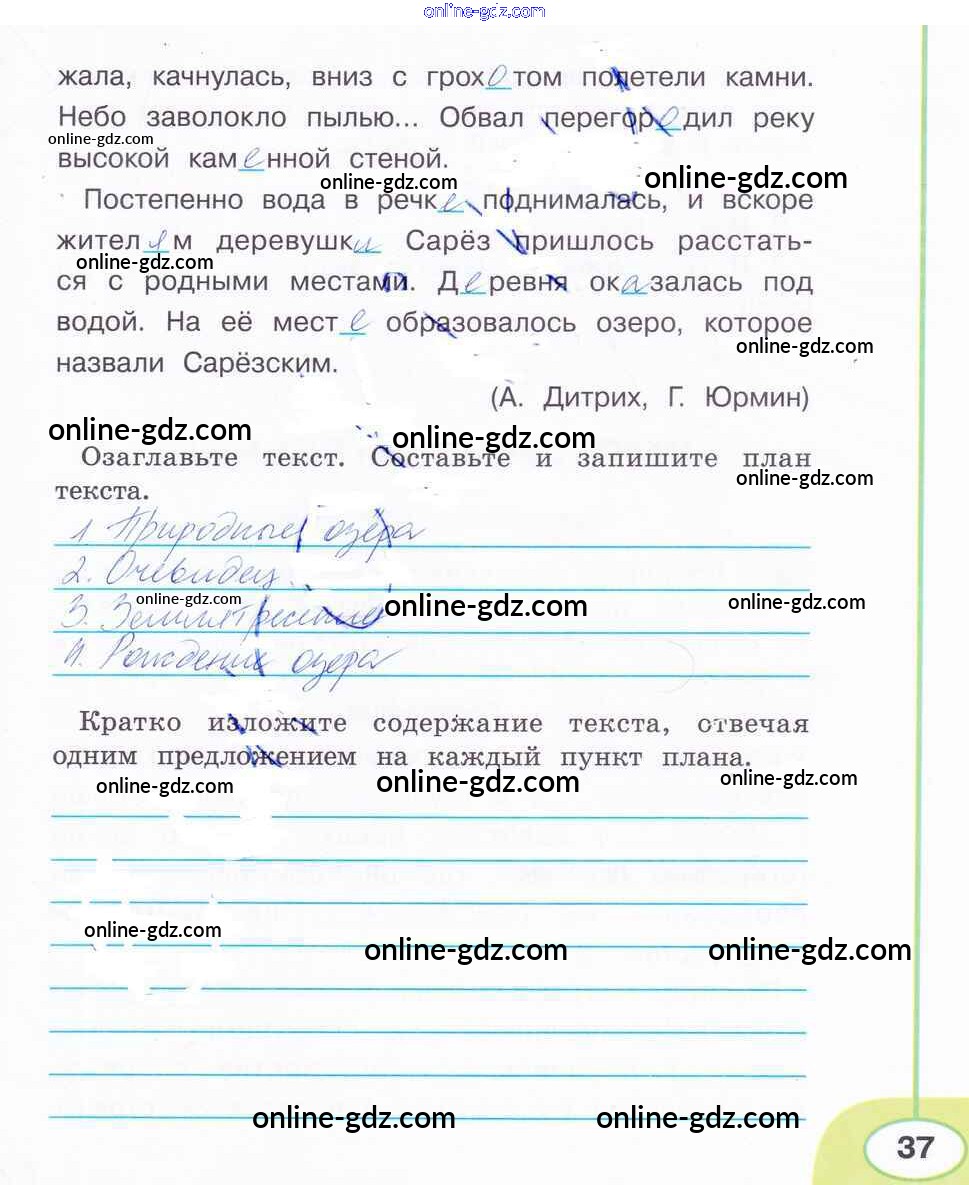 online-gdz.com
жала, качнулась, вниз с грохотом полетели камни.
Небо заволокло пылью... Обвал перегородил реку
online-gdz.com
высокой каменной стеной.
online-gdz.com
online-gdz.com
Постепенно вода в речке поднималась, и вскоре
жителям деревушки Сарёз пришлось расстать-
online-gdz.com
ся с родными местами. Деревня оказалась под
водой. На её месте образовалось озеро, которое
online-gdz.com
назвали Сарёзским.
(А. Дитрих, Г. Юрмин)
online-gdz.com
online-gdz.com
Озаглавьте текст. Составьте и запишите план
online-gdz.com
текста.
1. Природные озёра
2. Очевидец.
online-gdz.com
online-gdz.com
online-gdz.com
3. Землятресение
4. Рождение озера
Кратко изложите содержание текста, отвечая
одним предложением на каждый пункт плана.
online-gdz.com
online-gdz.com
online-gdz.com
online-gdz.com
online-gdz.com
online-gdz.com
online-gdz.com
online-gdz.com
37